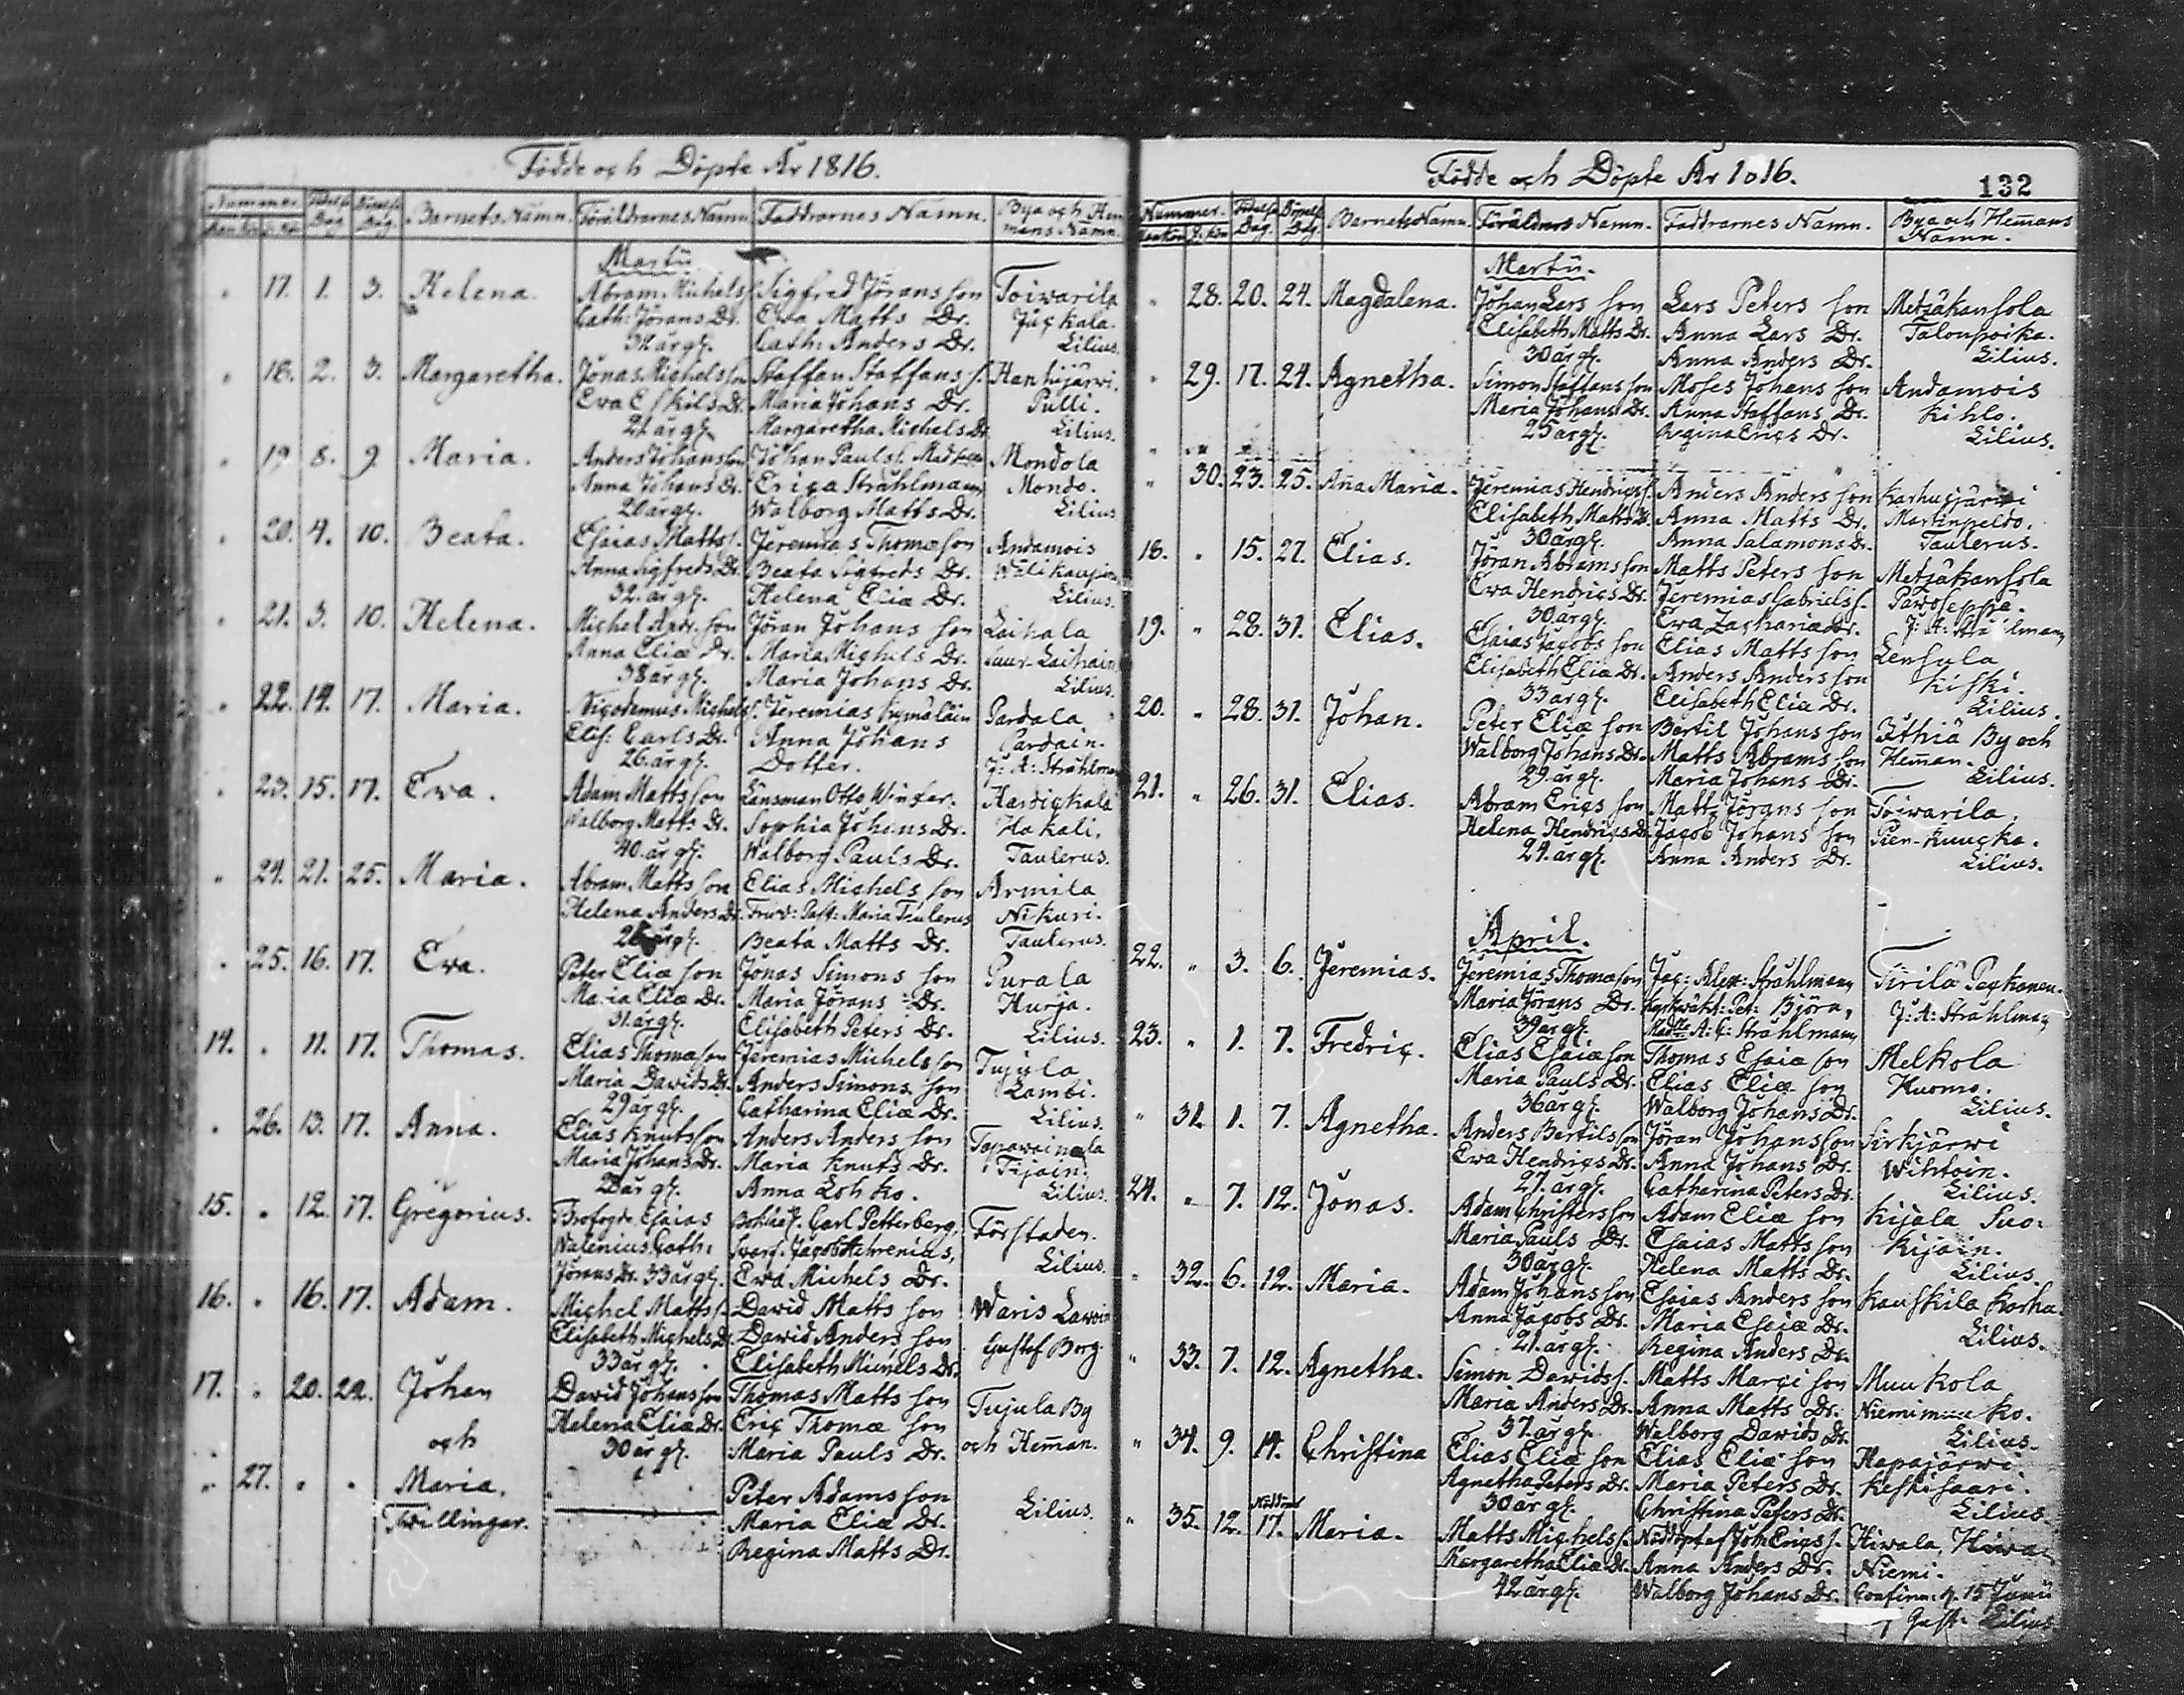 Födde och Döpte År 1816.
Nummer. Födelse Dag. Döpelse Dag. Barnets Namn. Föräldrarnes Namn. Faddrarnes Namn. Bya och Hemmans Namn.
Martii
" 17. 1. 3. Helena. Abram Michels s. Sigfred Jörans son Toiwarila
Cath: Jörans Dr. Ewa Matts Dr. Jackala.
år gl. Cath: Anders Dr. Lilius.
" 18. 2. 3. Margaretha. Jonas Michels son Staffan Staffans s. Hanhijärwi.
Ewa Eskils Dr. Maria Johans Dr. Pulli.
21 år gl. Margaretha Michels Dr. Lilius.
" 19 8. 9. Maria. Anders Johans son Johan Pauls s. Mondola
Anna Johans Dr. Erica Stråhlmann Mondo.
20 år gl. Walborg Matts Dr. Lilius
" 20. 4. 10. Beata. Esaias Matts s. Jeremias Thomæ son Andamois
Anna Sigfreds Dr. Beata Sigfreds Dr.
32. år gl. Helena Eliæ Dr. Lilius.
" 21. 3. 10. Helena. Michel Andr. son Jöran Johans son Laihala
Anna Eliæ Dr. Maria Michels Dr. Suur-Laihain
38 år gl. Maria Johans Dr. Lilius.
" 22. 14. 17. Maria. Nicodemus Michels s. Jeremias Pardala
Elis: Carls Dr. Anna Johans Pardain.
26. år gl. Dotter. J: A: Stråhlman
" 23. 15. 17. Ewa. Adam Matts son Länsman Otto Winter. Hardickala
Walborg Matts Dr. Sophia Johans Dr. Hakali.
40. år gl. Walborg Pauls Dr. Taulerus.
" 24. 21. 25. Maria. Abram Matts son Elias Michels son Armila
Helena Anders Dr. Fru v: Past: Maria Teulerus Nikuri.
år gl. Beata Matts Dr. Taulerus.
" 25. 16. 17. Ewa. Peter Eliæ son Jonas Simons son Purala
Maria Eliæ Dr. Maria Jörans Dr. Hurja.
31. år gl. Elisabeth Peters Dr. Lilius.
14. " 11. 17. Thomas. Elias Thomæ son Jeremias Michels son Tujula
Maria Davids Dr. Anders Simons son Lambi.
29 år gl. Catharina Eliæ Dr. Lilius.
" 26. 13. 17. Anna. Elias Knuts son Anders Anders son Tapawainala
Maria Johans Dr. Maria Knuts Dr. Tijain.
år gl. Anna Lohko. Lilius.
15. " 12. 17. Gregorius. Brofogde Esaias Carl Petterberg, Förstaden.
Walenius Cath: Jacob Achrenius, Lilius.
Jörans Dr. 33 år gl. Ewa Michels Dr.
16. " 16. 17. Adam. Michel Matts s. David Matts son Waris Lawoin
Elisabeth Michels Dr. David Anders son Gustef Borg.
33 år gl. Elisabeth Michels Dr.
17. " 20. 22. Johan David Johans son Thomas Matts son Tujula By
och Helena Eliæ Dr. Eric Thomæ son och Hemman.
30 år gl. Maria Pauls Dr.
" 27. " " Maria. Peter Adams son
Twillingar. Maria Eliæ Dr. Lilius.
Regina Matts Dr.
Födde och Döpte År 1816. 132
Nummer. Födelse Dag. Döpelse Dag. Barnets Namn. Föräldrars Namn. Faddrarnes Namn. Bya och Hemans Namn.
Martii.
" 28. 20. 24. Magdalena. Johan Lars son Lars Peters son Metzäkansola
Elisabeth Matts Dr. Anna Lars Dr. Talonpoika.
30 år gl. Anna Anders Dr. Lilius.
" 29. 17. 24. Agnetha. Simon Staffans son Moses Johans son Andamois
Maria Johans Dr. Anna Staffans Dr. Kihlo.
25 år gl. Regina Erics Dr. Lilius.
" 30. 23. 25. Aña Maria. Jeremias Hendrics s. Anders Anders son Karhusjärwi
Elisabeth Matts Dr. Anna Matts Dr. Martinpeldo.
30 år gl. Anna Salamons Dr. Taulerus.
18. " 15. 27. Elias. Jöran Abrams son Matts Peters son Metzäkansola
Ewa Hendrics Dr. Jeremias Gabriels s. Pawoseppä.
30 år gl. Ewa Zachariæ Dr. J: A: Stråhlmann
19. " 28. 31. Elias. Esaias Jacobs son Elias Matts son Lensula
Elisabeth Eliæ Dr. Anders Anders son Kiski.
33 år gl. Elisabeth Eliæ Dr. Lilius.
20. " 28. 31. Johan. Peter Eliæ son Bertil Johans son Ithiä By och
Walborg Johans Dr. Matts Abrams son Heman.
29 år gl. Maria Johans Dr. Lilius.
21. " 26. 31. Elias. Abram Erics son Matts Jörans son Toiwarila,
Helena Hendrics Dr. Jacob Johans son Pien-Kuucka.
24. år gl. Anna Anders Dr. Lilius.
April.
22. " 3. 6. Jeremias. Jeremias Thomæ son Jac: Alex: Stråhlmann Tirilä Peckonen.
Maria Jörans Dr. Pet: Björn, J: A: Stråhlman
39 år gl. Madlle A: C: Strahlmann
23. " 1. 7. Fredric. Elias Esaiæ son Thomas Esaiæ son Melkola
Maria Pauls Dr. Elias Eliæ son Huomo.
36 år gl. Walborg Johans Dr. Lilius.
" 31. 1. 7. Agnetha. Anders Bertils son Jöran Johans son Sirkjärwi
Ewa Hendrics Dr. Anna Johans Dr. Wihtoin.
27. år gl. Catharina Peters Dr. Lilius.
24. " 7. 12. Jonas. Adam Christers son Adam Eliæ son Kijala Suo-
Maria Pauls Dr. Esaias Matts son Kijain.
30 år gl. Helena Matts Dr. Lilius.
" 32. 6. 12. Maria. Adam Johans son Esaias Anders son Kauskila Karhu.
Anna Jacobs Dr. Maria Esaiæ Dr.
21. år gl. Regina Anders Dr. Lilius.
" 33. 7. 12. Agnetha. Simon Davids s. Matts Marci son Muukola
Maria Anders Dr. Anna Matts Dr. Niemimuuko.
37. år gl. Walborg Davids Dr. Lilius.
" 34. 9. 14. Christina Elias Eliæ son Elias Eliæ son Hapajärwi
Agnetha Peters Dr. Maria Peters Dr. Keskisaari.
30 år gl. Christina Peters Dr. Lilius.
" 35. 12. 17. Maria. Matts Michels s. Nöddöpt af Joh: Erics s. Hiwala,
Margaretha Eliæ Dr. Anna Anders Dr. Niemi.
42 år gl. Walborg Johans Dr. Confirm: 15 Junii
Lilius